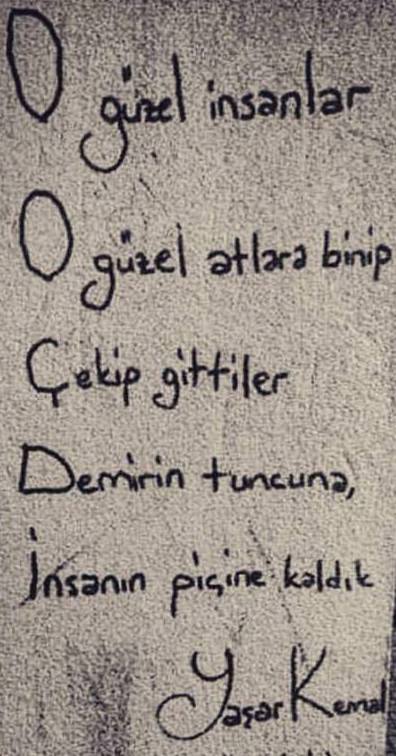 O güzel insanlar
O güzel atlara binip
Çekip gittiler
Demirin tuncuna,
İnsanın piçine kaldık
Yaşar Kemal